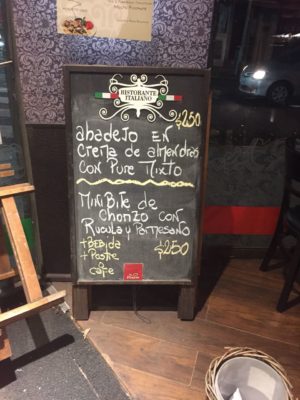 RISTORANTE
ITALIANO
$250
abadejo EN
CREMA de almendras
CON PURE MIXTO
MINI Bife de
Chorizo con
Rucula y Parmesano
+BEBida $250
+ Postre
o
cafe